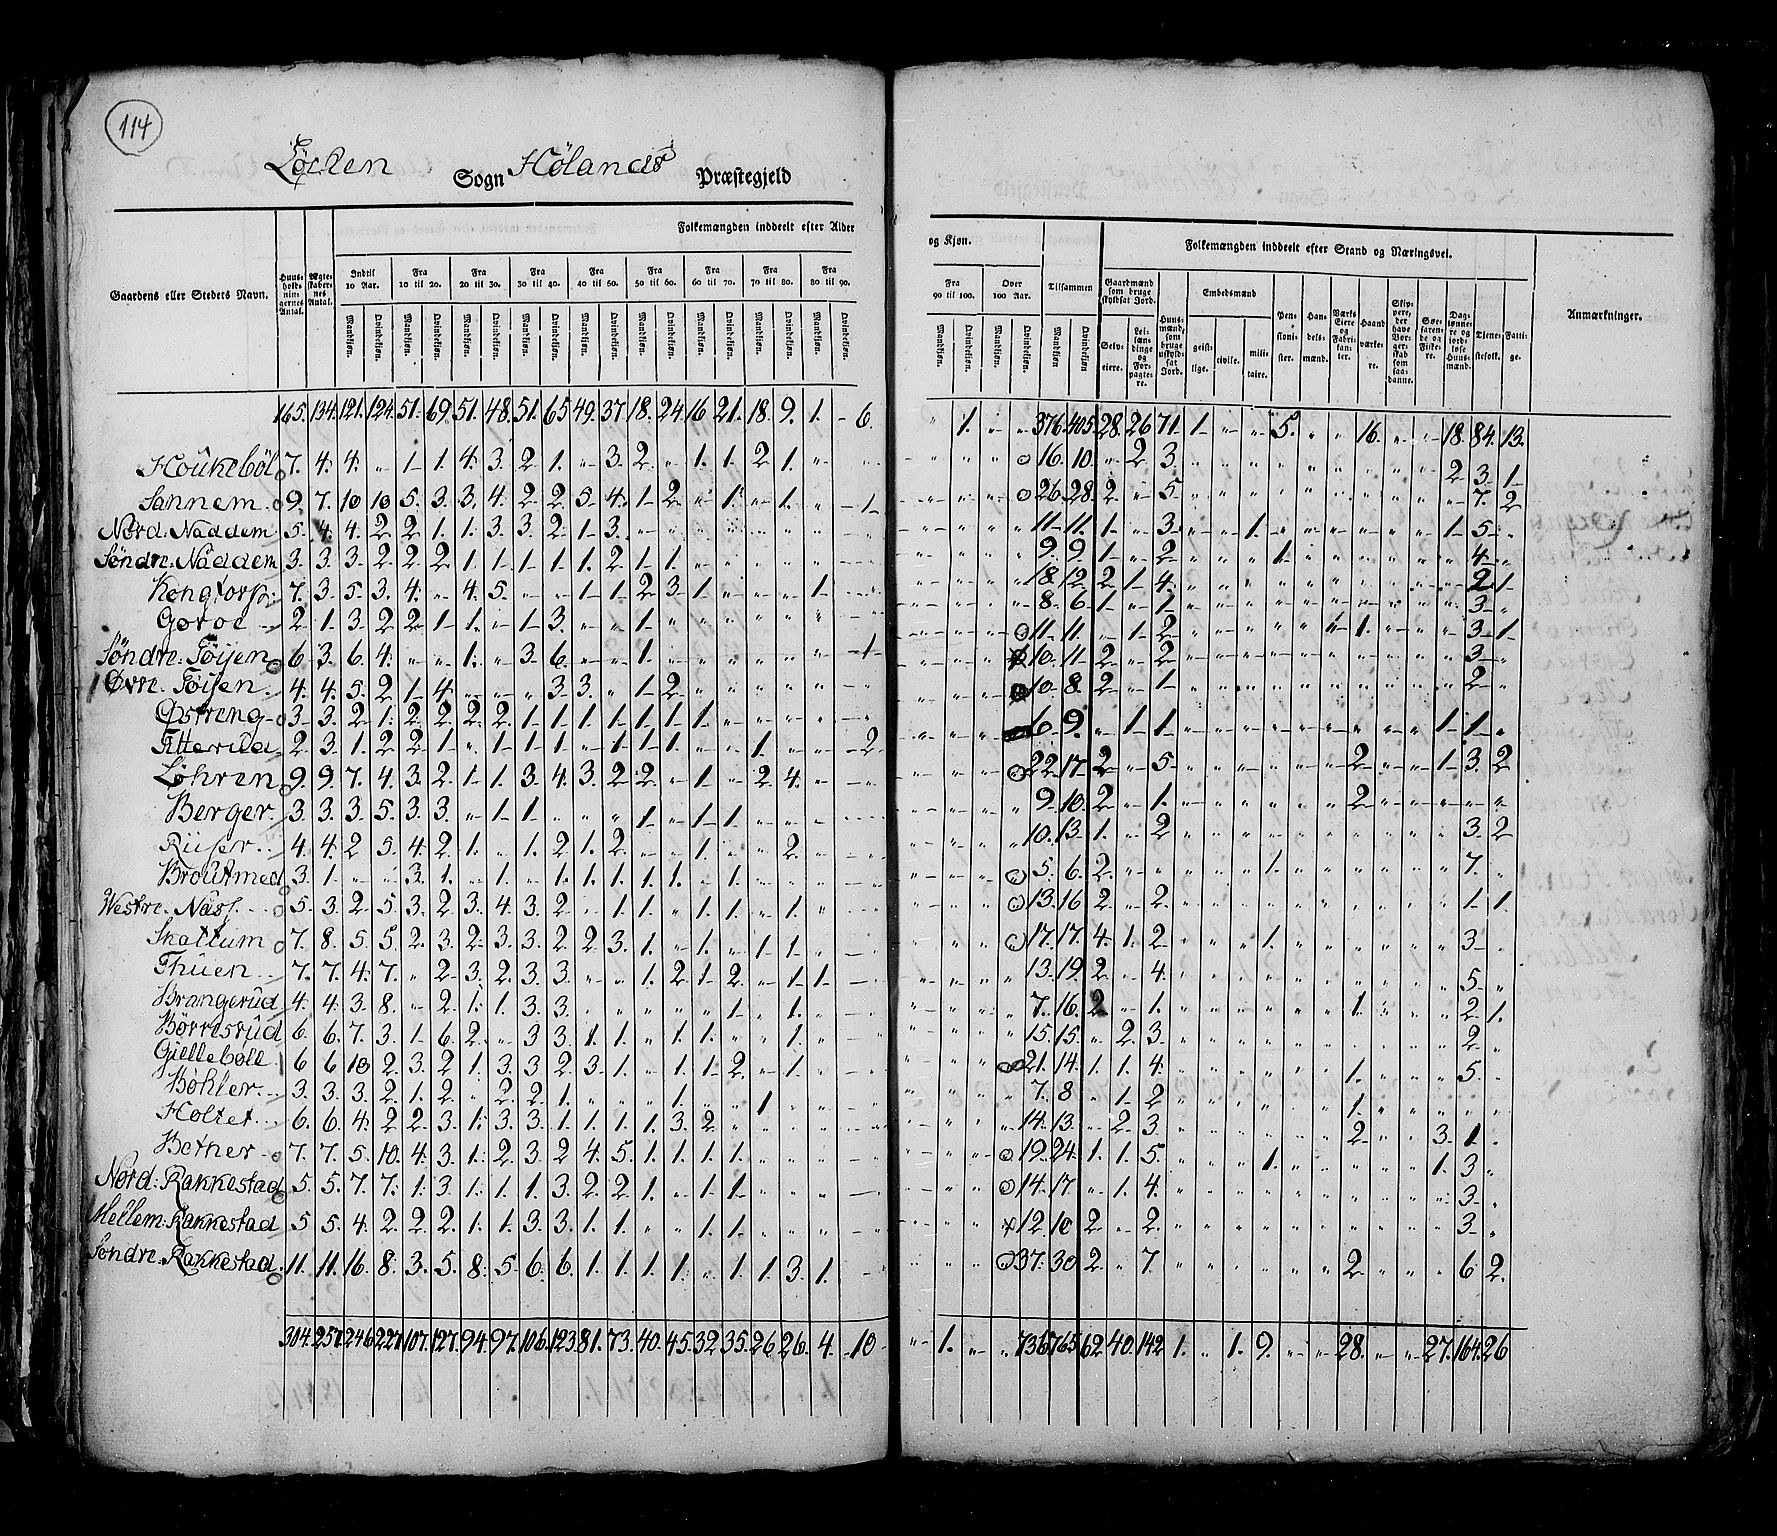 114
Løcken Sogn Hølands Præstegjeld
Folkemængden inddeelt efter Alder og Kjøn. Folkemængden inddeelt efter Stand og Næringsvei.
Gaardens eller Steders Navn. Huus-holdnin-gernes Antal. Ægte-skaber-nes Antal. Indtil 10 Aar. Fra 10 til 20. Fra 20 til 30. Fra 30 til 40. Fra 40 til 50. Fra 50 til 60. Fra 60 til 70. Fra 70 til 80. Fra 80 til 90. Fra 90 til 100. Over 100 Aar. Tilsammen Gaardmænd som bruge skyldsat Jord. Huus-mænd, som bruge uskyld-sat Jord. Embedsmænd Pen-sioni-ster. Han-dels-mænd. Værks Eiere og Fabri-kanter. Haand værke-re. Skip-pere, der have Bor-ger-skab som saa-danne. Søe-faren-de og Fiske-re. Dag-lønne-re og jord-løse Huus-mænd. Tjene-stefolk. Fatti-ge. Anmærkninger.
Mandkjøn. Qvindekjøn. Selv-eiere. Lei-læn-dinge og For-pagte-re. geist-lige. civile. mili-taire.
165. 134. 121. 124. 51. 69. 51. 48. 51. 65. 49. 37. 18. 24. 16. 21. 18. 9. 1. - 6. " 1. " " 376. 405. 28. 26. 71. 1. " " 5. " " 16. " " 18. 84. 13.
Houkebøl 7. 4. 4. " 1. 1. 4. 3. 2. 1. " 3. 2. " 1. 1. 2. 1. " " 16. 10. " 2. 3. 2. 3. 1.
Sannem 9. 7. 10. 10. 5. 3. 3. 4. 2. 2. 5. 4. 1. 2. " 1. " 1. " 1. 26. 28. 2. " 5. 7. 2.
Nord. Naddem 5. 4. 4. 2. 2. 1. 1. 3. 3. 2. 1. 3. 11. 11. 1. " 3. 1. 1. 5.
Søndre. Naddem 3. 3. 3. 2. 2. 2. 1. 1. 1. 1. 1. 2. 1. 1. 9. 9. 1. " 2. 1. 4.
Kongtorp. 7. 3. 5. 3. 4. " 4. 5. " " 1. 1. 2. 3. 1. " " " 1. 18. 12. 2. 1. 4. 2. 1.
2. 1. 3. 2. 2. 1. 1. " 1. 3. " " 1. 8. 6. 1. " 1. 3.
Søndre. Tøijen 6. 3. 6. 4. " " 1. " 3. 6. " " 1. 1. 11. 11. " 1. 2. 1. 3. 1.
Øvre. Tøijen 4. 4. 5. 2. 1. 4. " " " 3. 3. " 1. 2. 10. 11. 2. " 2. 3.
Østreng 3. 3. 2. 1. 2. 2. 2. 2. 1. 1. 1. 1. 1. 1. 1. 10. 8. 2. " 1. 2.
Fitterud 2. 3. 1. 2. 2. 1. " 1. 1. 1. " 1. 1. 1. " " 1. " " 2. 6. 9. " 1. 1. 1. 1.
Løhren 9. 9. 7. 4. 3. 2. 1. 1. 3. 4. 3. 2. 2. " 1. " 2. 4. 22. 17. 2. " 5. 2. 1. 3. 2.
Berger 3. 3. 3. 5. 3. 3. " 1. 1. " " " 1. " 1. 1. 9. 10. 2. " 1. 2.
Riiser 4. 4. 2. 5. 4. 2. 1. " 1. 2. 1. 2. " " 1. " " 2. 10. 13. 1. " 2. 3. 2.
Broutmed 3. 1. " " 3. 1. " 1. " 1. 1. 1. 1. 1. " 1. 5. 6. 2. 1. 7.
Westre. Næss 5. 3. 2. 5. 3. 2. 3. 4. 3. 2. " 1. 1. " 1. 1. " 1. 13. 16. 2. " 2. 1. 1.
Skallum 7. 8. 5. 5. 2. 3. 2. 3. 3. 2. 2. 3. 1. " 1. " 1. 1. 17. 17. 4. 1. 2. 1. 3.
Thuen 7. 7. 4. 7. " 2. 3. 2. 3. 3. " " 1. 2. 1. 2. " 1. 1. 13. 19. 2. " 4. 5.
Brangerud 4. 4. 3. 8. " 2. 1. 1. 3. 3. " " " " " 1. " 1. 7. 16. 2. " 1. 1. 2. 1.
Børresrud 6. 6. 7. 3. 1. 6. 2. " 3. 3. 1. 1. " 1. 1. " " 1. 15. 15. " 2. 3. 2.
Giellebøll 6. 6. 10. 2. 3. 2. 1. 3. 3. 2. 3. 1. " 1. 1. 2. " 1. 21. 14. 1. 1. 4. 1. 5.
Bøhler 3. 3. 3. 2. 1. 2. " 2. 2. 1. " " " 1. " " 1. 7. 8. " 1. 2. 1.
Holtet 6. 6. 4. 2. 2. 3. 1. 3. 3. 1. 1. 1. 1. 3. 2. 14. 13. " 2. 3. 2. 3. 1.
Bether 7. 7. 5. 10. 4. 3. 1. 2. 3. 2. 4. 5. 1. 1. 1. 1. 19. 24. 1. 1. 5. 1. 1. 3.
Nord. Rakkestad 5. 5. 7. 7. 1. 3. 1. 1. 1. 3. 2. 2. 1. " 1. 1. 14. 17. " 1. 4. 3.
Mellem. Rakkestad 5. 5. 4. 2. 2. 2. 1. 1. 3. 3. 1. 1. " " 1. 1. 12. 10. 2. " 2. 3.
Søndre. Rakkestad 11. 11. 16. 8. 3. 5. 8. 5. 6. 6. 1. 1. 1. 1. " 1. 1. 3. 1. 37. 30. 2. " 7. 2. 6. 2.
304. 257. 246. 227. 107. 127. 94. 97. 106. 123. 81. 73. 40. 45. 32. 35. 26. 26. 4. 10. " 1. " " 736. 765. 62. 40. 142. 1. " 1. 9. " " 28. " " 27. 164. 26